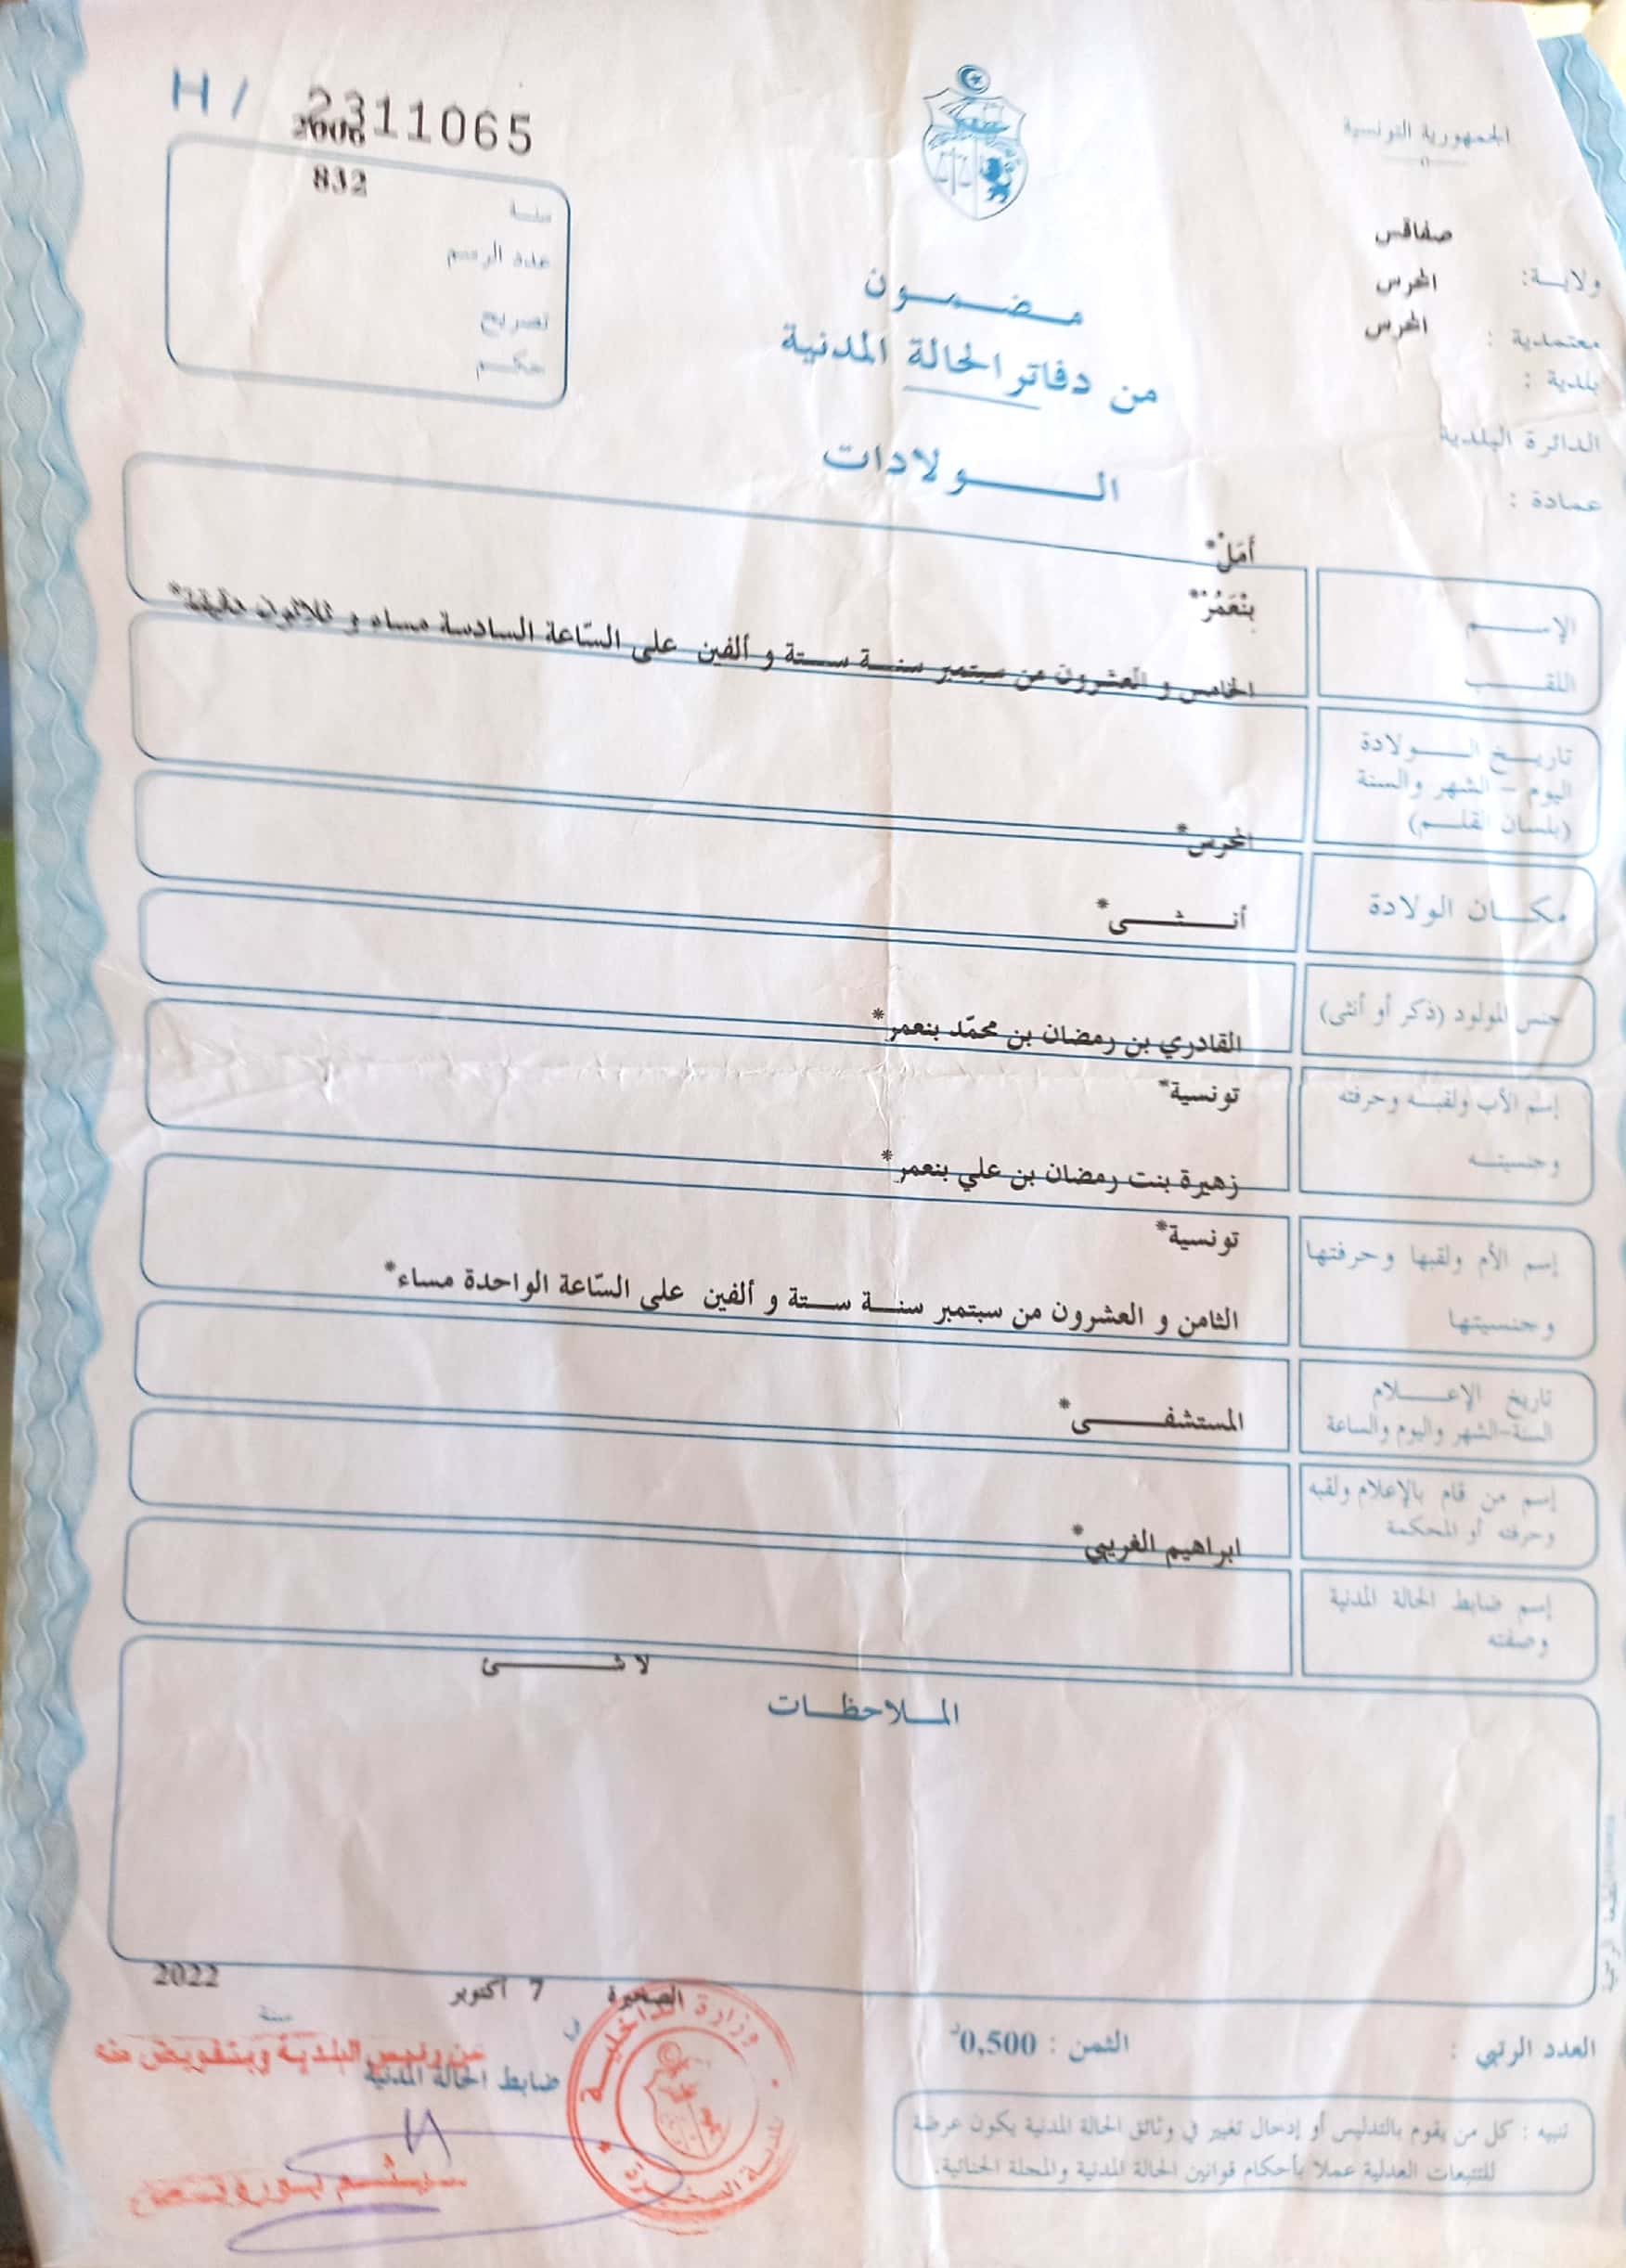 الجمهورية التونسية
H / 2311065
2006
832
صفاقس
ولاية:
المحرس
معتمدية :
المحرس
بلدية :
الدائرة البلدية
عمادة :
سنة
عدد الرسم
تصريح
حكم
مضمون
من دفاتر الحالة المدنية
الولادات
أَمَلْ*
الإسم
بنْعَمُرْ*
اللقب
الخامس و العشرون من سبتمبر سنة ستة و ألفين على السّاعة السادسة مساء و ثلاثون دقيقة*
تاريخ الولادة
اليوم - الشهر والسنة
(بلسان القلم)
المحرس*
مكان الولادة
أنثى*
جنس المولود (ذكر أو أنثى)
القادري بن رمضان بن محمّد بنعمر*
إسم الأب ولقبه وحرفته
تونسية*
وجنسيته
زهيرة بنت رمضان بن علي بنعمر*
إسم الأم ولقبها وحرفتها
تونسية*
وجنسيتها
الثامن و العشرون من سبتمبر سنة ستة و ألفين على السّاعة الواحدة مساء*
تاريخ الإعلام
السنة-الشهر واليوم والساعة
المستشفى*
إسم من قام بالإعلام ولقبه
وحرفته أو المحكمة
ابراهيم الغريبي*
إسم ضابط الحالة المدنية
وصفته
لا شئ
الملاحظات
الصخيرة 7 أكتوبر 2022
في سنة
عن رئيس البلدية وبتفويض منه
ضابط الحالة المدنية
وزارة الداخلية
بلدية الصخيرة
العدد الرتبي :
الثمن : 0,500د
تنبيه : كل من يقوم بالتدليس أو إدخال تغيير في وثائق الحالة المدنية يكون عرضة
للتتبعات العدلية عملا بأحكام قوانين الحالة المدنية والمجلة الجنائية.